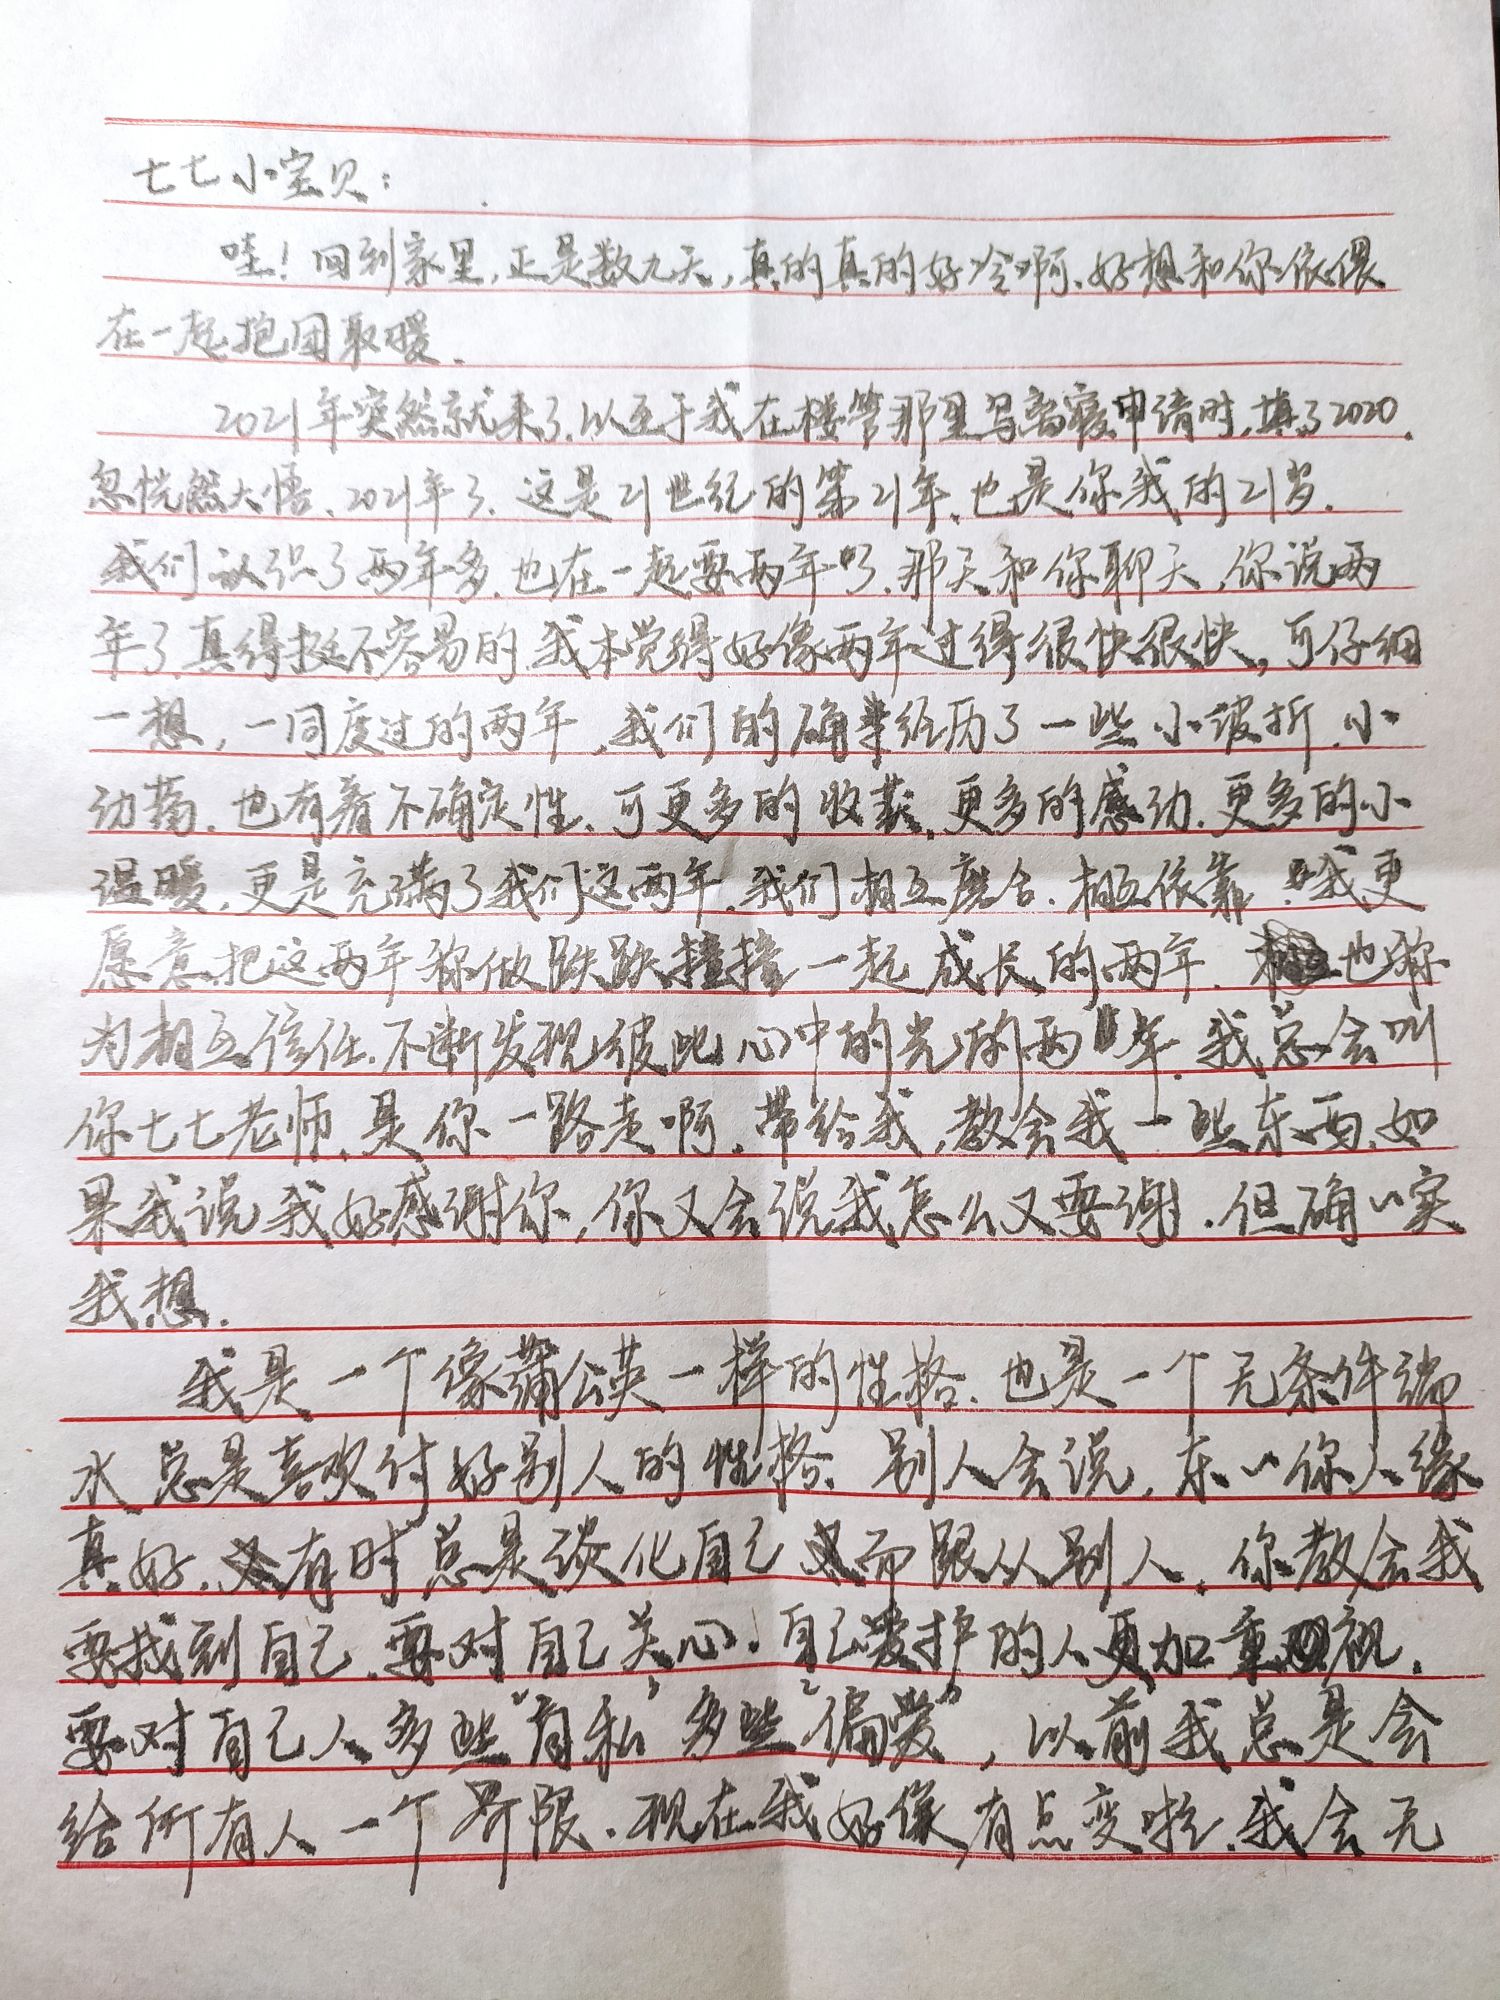 七七小宝贝：
哇！回到家里，正是数九天，真的真的好冷啊，好想和你依偎
在一起抱团取暖。
2021年突然就来了，以至于我在楼管那里写离寝申请时，填了2020，
忽恍然大悟，2021年了，这是21世纪的第21年，也是你我的21岁。
我们认识了两年多，也在一起要两年了，那天和你聊天，你说两
年了，真得挺不容易的，我本觉得好像两年过得很快很快，可仔细
一想，一同度过的两年，我们的确经历了一些小波折，小
动荡，也有着不确定性，可更多的收获，更多的感动，更多的小
温暖，更是充满了我们这两年，我们相互磨合，相互依靠，我更
愿意把这两年称做跌跌撞撞一起成长的两年，也称
为相互信任，不断发现彼此心中的光的两年，我总会叫
你七七老师，是你一路走啊，带给我，教会我一些东西，如
果我说我好感谢你，你又会说我怎么又要谢，但确实
我想。
我是一个像蒲公英一样的性格，也是一个无条件端
水总是喜欢付好别人的性格，别人会说，东、你人缘
真好，有时总是淡化自己而跟从别人，你教会我
要找到自己，要对自己关心，自己爱护的人更加重视，
要对自己人多些“自私”多些“偏爱”，以前我总是会
给所有人一个界限，现在我好像有点变啦，我会无